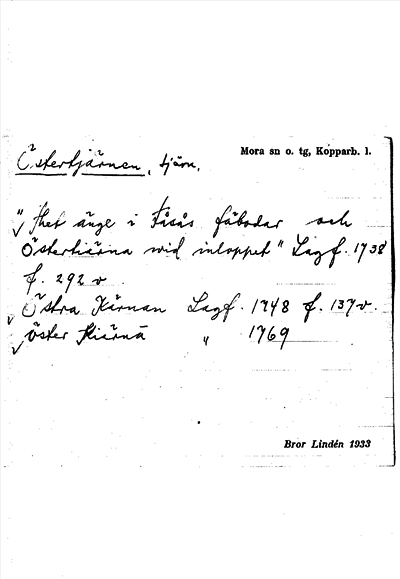 Östertjärnen, tjärn.
Mora sn o. tg, Kopparb. l.
"Thet änge i Fåsås fäbodar och
Östertiärna wid inloppet" Lagf. 1738
f. 292 v
Östra Kärnan Lagf. 1748 f. 137 v.
öster Kiärnä " 1769
Bror Lindén 1933